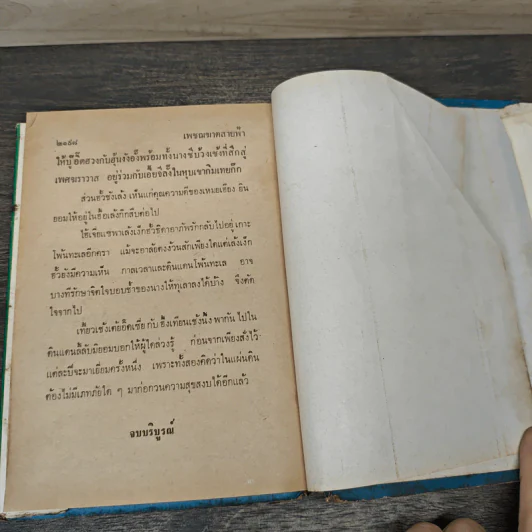 ๒๑๙๘
เพชฌฆาตสายฟ้า
ให้บู๊อิดฮวงกับฮุ้นงังอี้งพร้อมทั้งนางชีบ้วงเช้งที่สึกสู่
เพศฆราวาส อยู่ร่วมกับเอี้ยซิลิ้งในหุบเขากิมเทยกีก
ส่วนฮั้วชังเล้ง เห็นแก่คุณความดีของเหมยเฮียง ยิน
ยอมให้อยู่ในฮ้อเล้งกีกสืบต่อไป
ไฮ้เจียแชพาเล้งเง็กฮั้วธิดาอาภัพรักกลับไปอยู่เกาะ
โพ้นทะเลอีกครา แม้จะอาลัยคงง้วนสักเพียงใดแต่เล้งเง็ก
ฮั้วยังมีความเห็น กาลเวลาและดินแดนโพ้นทะเล อาจ
บางทีรักษาจิตใจบอบช้ำของนางให้ทุเลาลงได้บ้าง จึงตัด
ใจจากไป
เทียวเช้งเค้ยอ๊ดเซี้ย กับ อึ้งเทียนเช้งนึ้ง พากัน ไปใน
ดินแดนลี้ลับมิยอมบอกให้ผู้ใดล่วงรู้ ก่อนจากเพียงสั่งไว้
แต่ละปีจะมาเยี่ยมครั้งหนึ่ง เพราะทั้งสองคิดว่าในแผ่นดิน
ต้องไม่มีเภทภัยใด ๆ มาก่อกวนความสุขสงบได้อีกแล้ว
จบบริบูรณ์